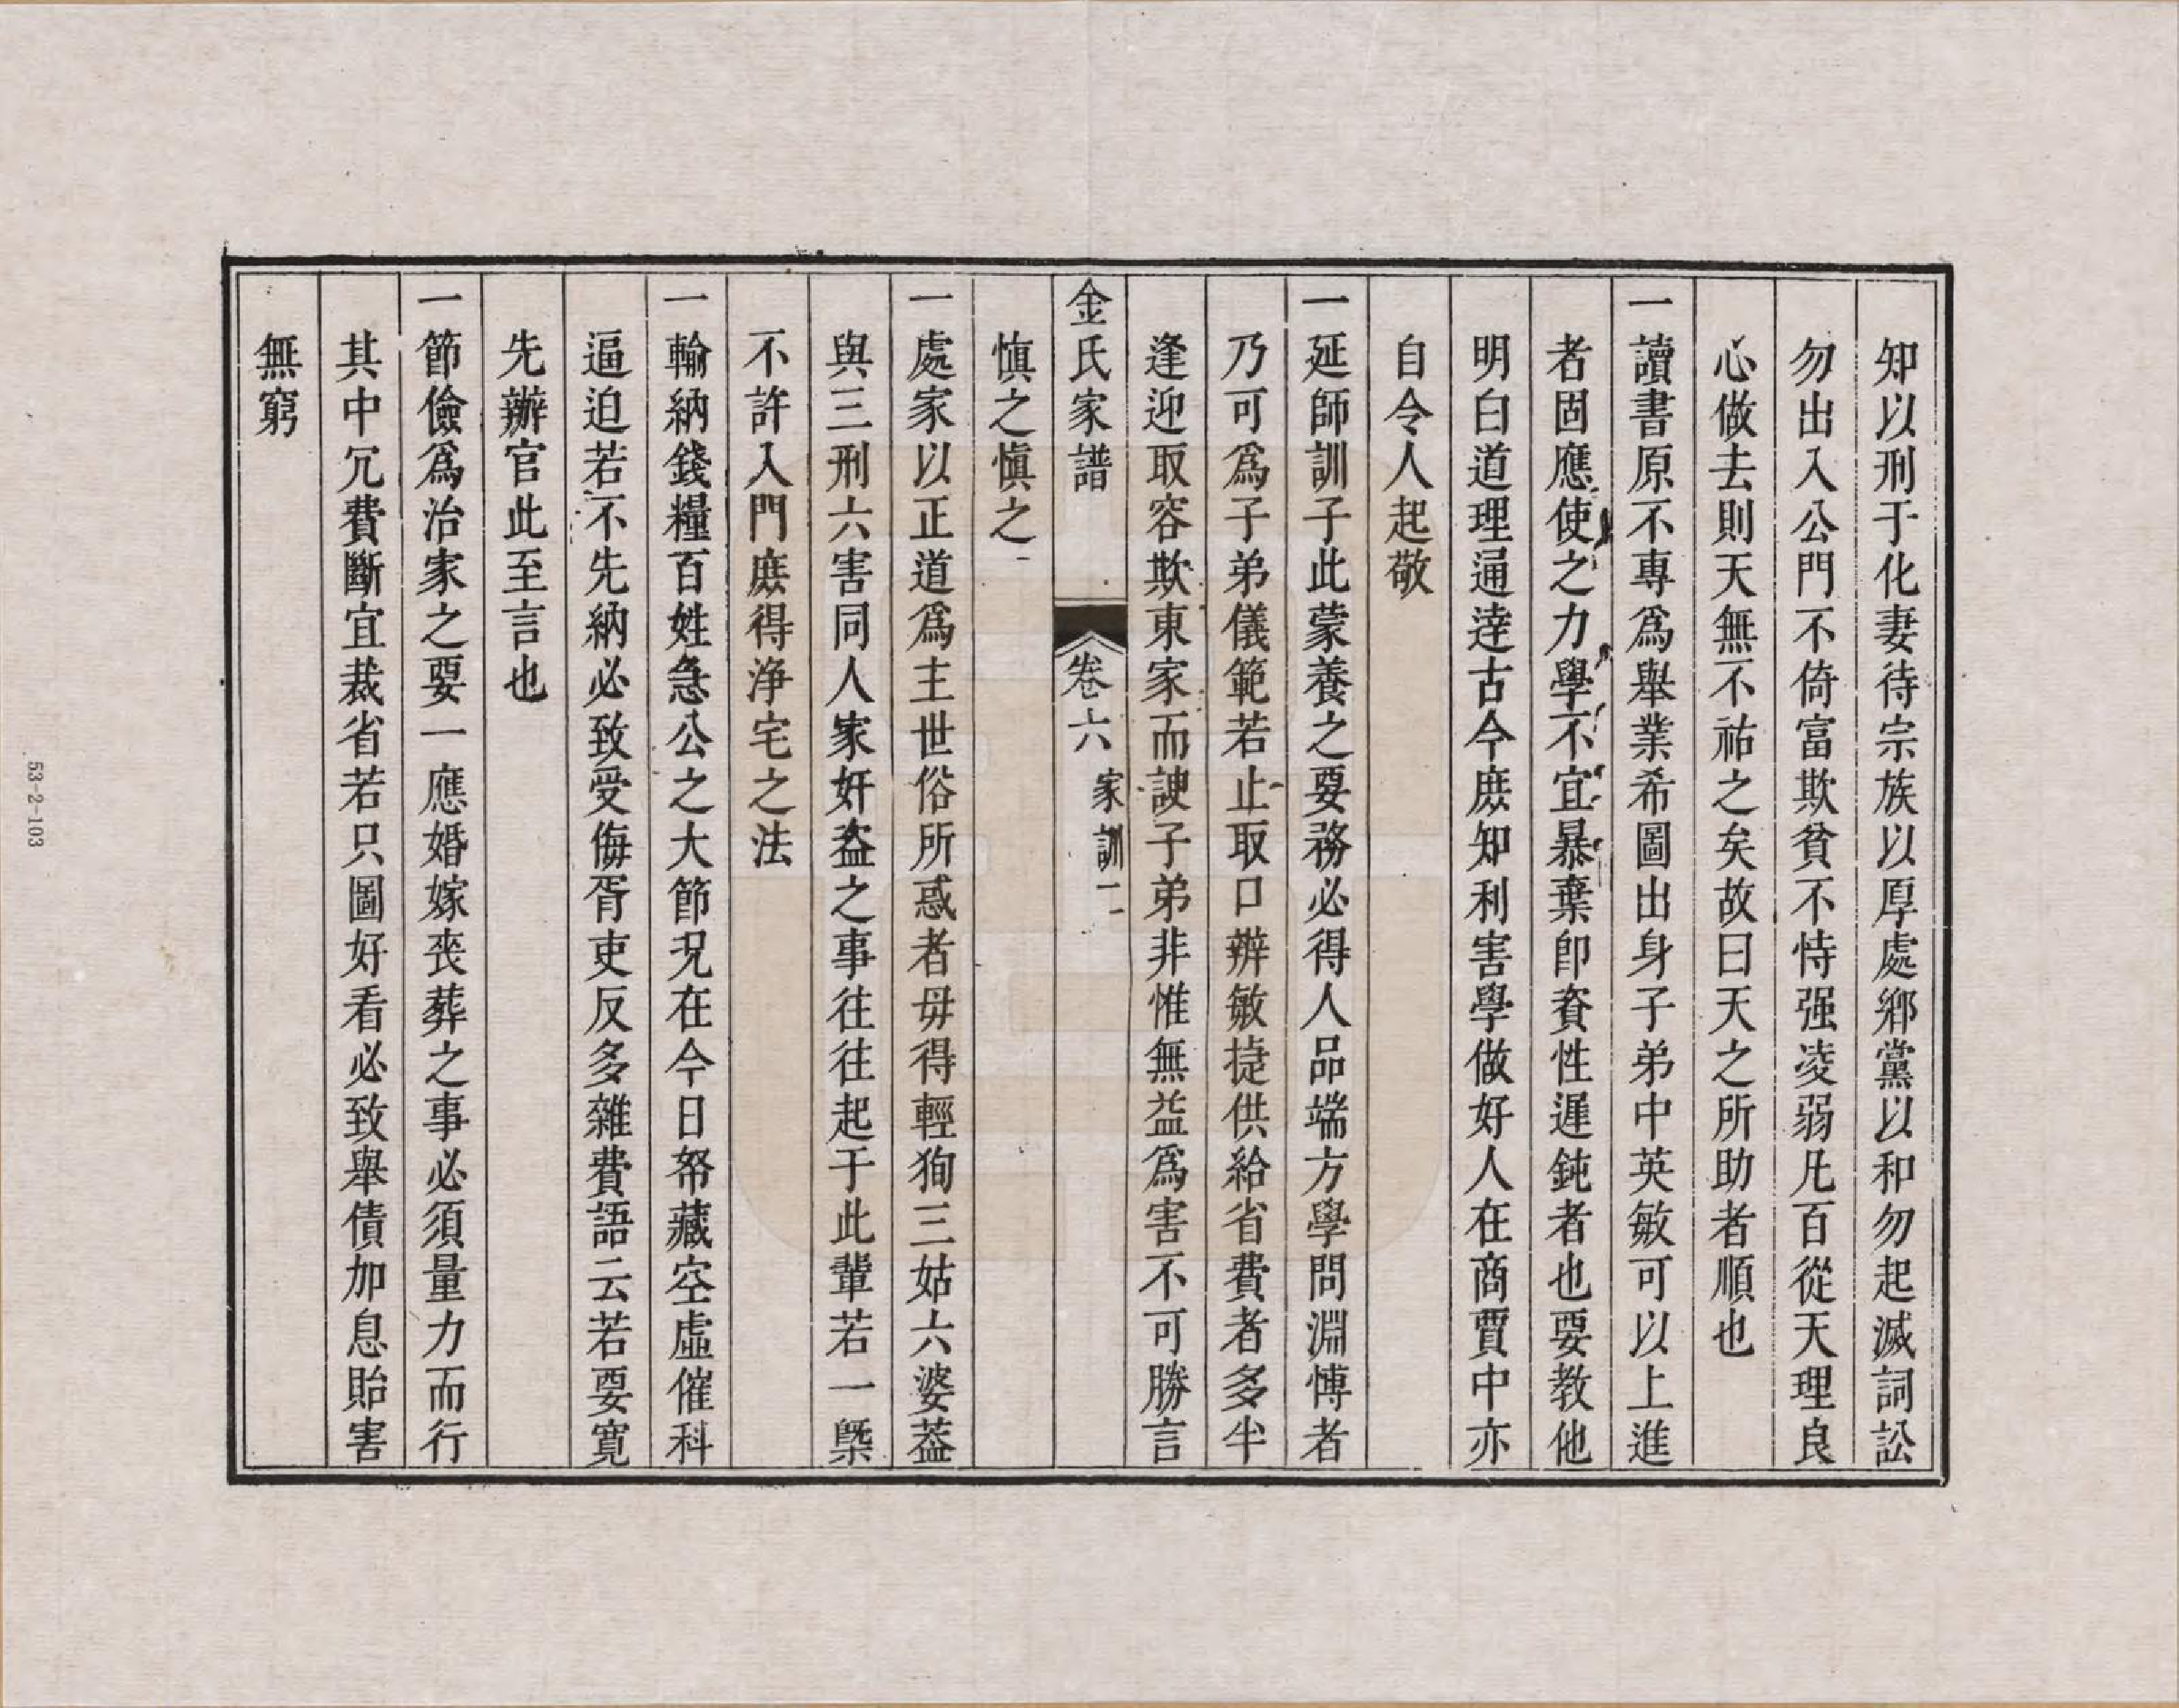 知以刑于化妻待宗族以厚處鄉黨以和勿起滅詞訟
勿出入公門不倚富欺貧不恃强凌弱凡百從天理良
心做去則天無不祐之矣故曰天之所助者順也
一讀書原不專爲舉業希圖出身子弟中英敏可以上進
者固應使之力學不宜暴棄卽資性遲鈍者也要教他
明白道理通達古今庶知利害學做好人在商賈中亦
自令人起敬
一延師訓子此蒙養之要務必得人品端方學問淵博者
乃可爲子弟儀範若止取口辯敏捷供給省費者多半
逢迎取容欺東家而諛子弟非惟無益爲害不可勝言
金氏家譜 卷六 家訓 二
愼之愼之
一處家以正道爲主世俗所惑者毋得輕狥三姑六婆葢
與三刑六害同人家奸盜之事往往起于此輩若一槩
不許入門庶得淨宅之法
一輸納錢糧百姓急公之大節況在今日帑藏空虛催科
逼迫若不先納必致受侮胥吏反多雜費語云若要寬
先辦官此至言也
一節儉爲治家之要一應婚嫁喪葬之事必須量力而行
其中冗費斷宜裁省若只圖好看必致舉債加息貽害
無窮
53-2-103